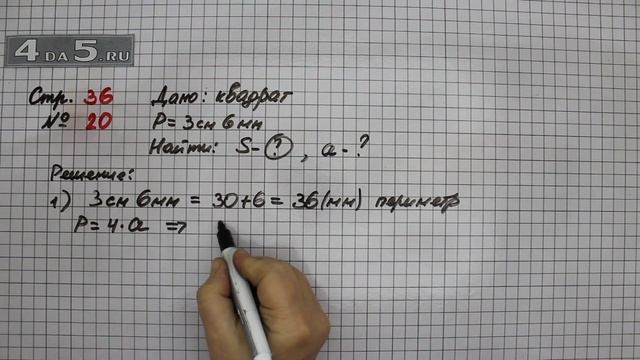 4 DA 5.RU
Стр. 36 Дано: квадрат
№ 20 P = 3 см 6 мм
Найти: S - ?, a - ?
Решение:
1) 3 см 6 мм = 30 + 6 = 36 (мм) периметр
P = 4 · a ⇒